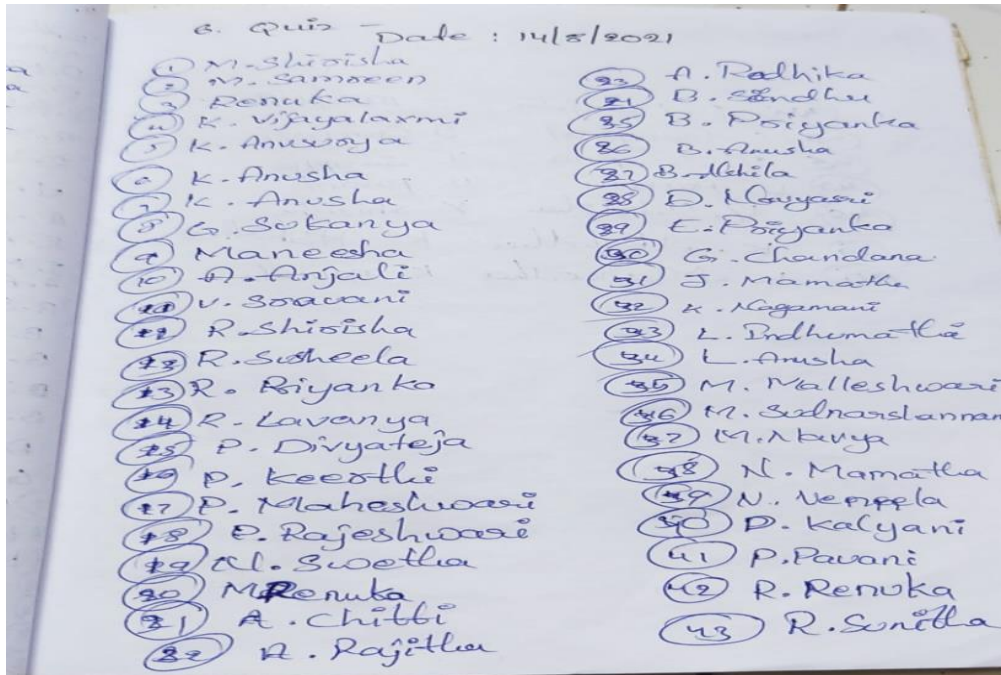 6. Quiz Date : 14/8/2021
1 M. Shirisha
2 M. Samreen
3 Renuka
4 K. Vijayalaxmi
5 K. Anusorya
6 K. Anusha
7 K. Anusha
8 G. Sukanya
9 Maneesha
10 A. Anjali
11 V. Sravani
12 R. Shirisha
13 R. Susheela
13 R. Priyanka
14 R. Lavanya
15 P. Divyateja
16 P. Keerthi
17 P. Maheshwari
18 P. Rajeshwari
19 N. Swetha
20 M Renuka
21 A. Chitti
22 A. Rajitha
23 A. Radhika
24 B. Sandhu
25 B. Priyanka
26 B. Anusha
27 B. Akhila
28 D. Navyasri
29 E. Priyanka
30 G. Chandana
31 J. Mamatha
32 K. Nagamani
33 L. Indhumathi
34 L. Anusha
35 M. Malleshwari
36 M.
37 M. Navya
38 N. Mamatha
39 N. Vennela
40 P. Kalyani
41 P. Pavani
42 R. Renuka
43 R. Sunitha